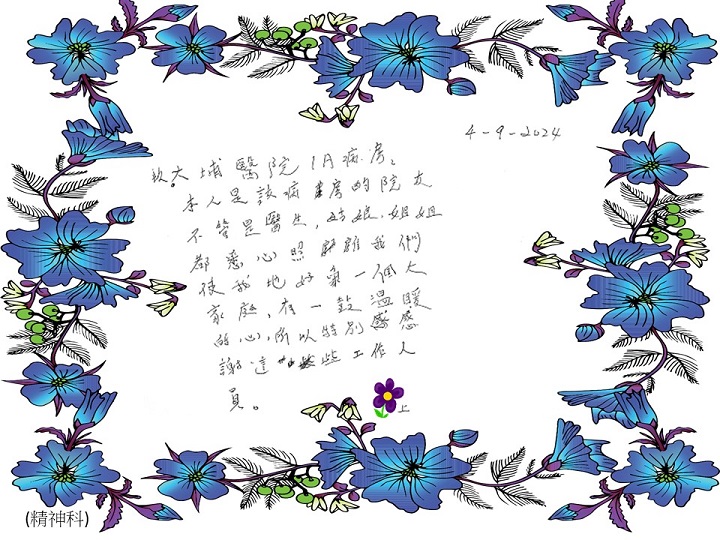 4-9-2024
致大埔醫院1A病房:
本人是該病房的院友
不管是醫生,姑娘,姐姐
都悉心照顧我們
使我地好氣一個大
家庭,有一鼓溫暖
的心,所以特別感
謝這些工作人
員。
上
(精神科)